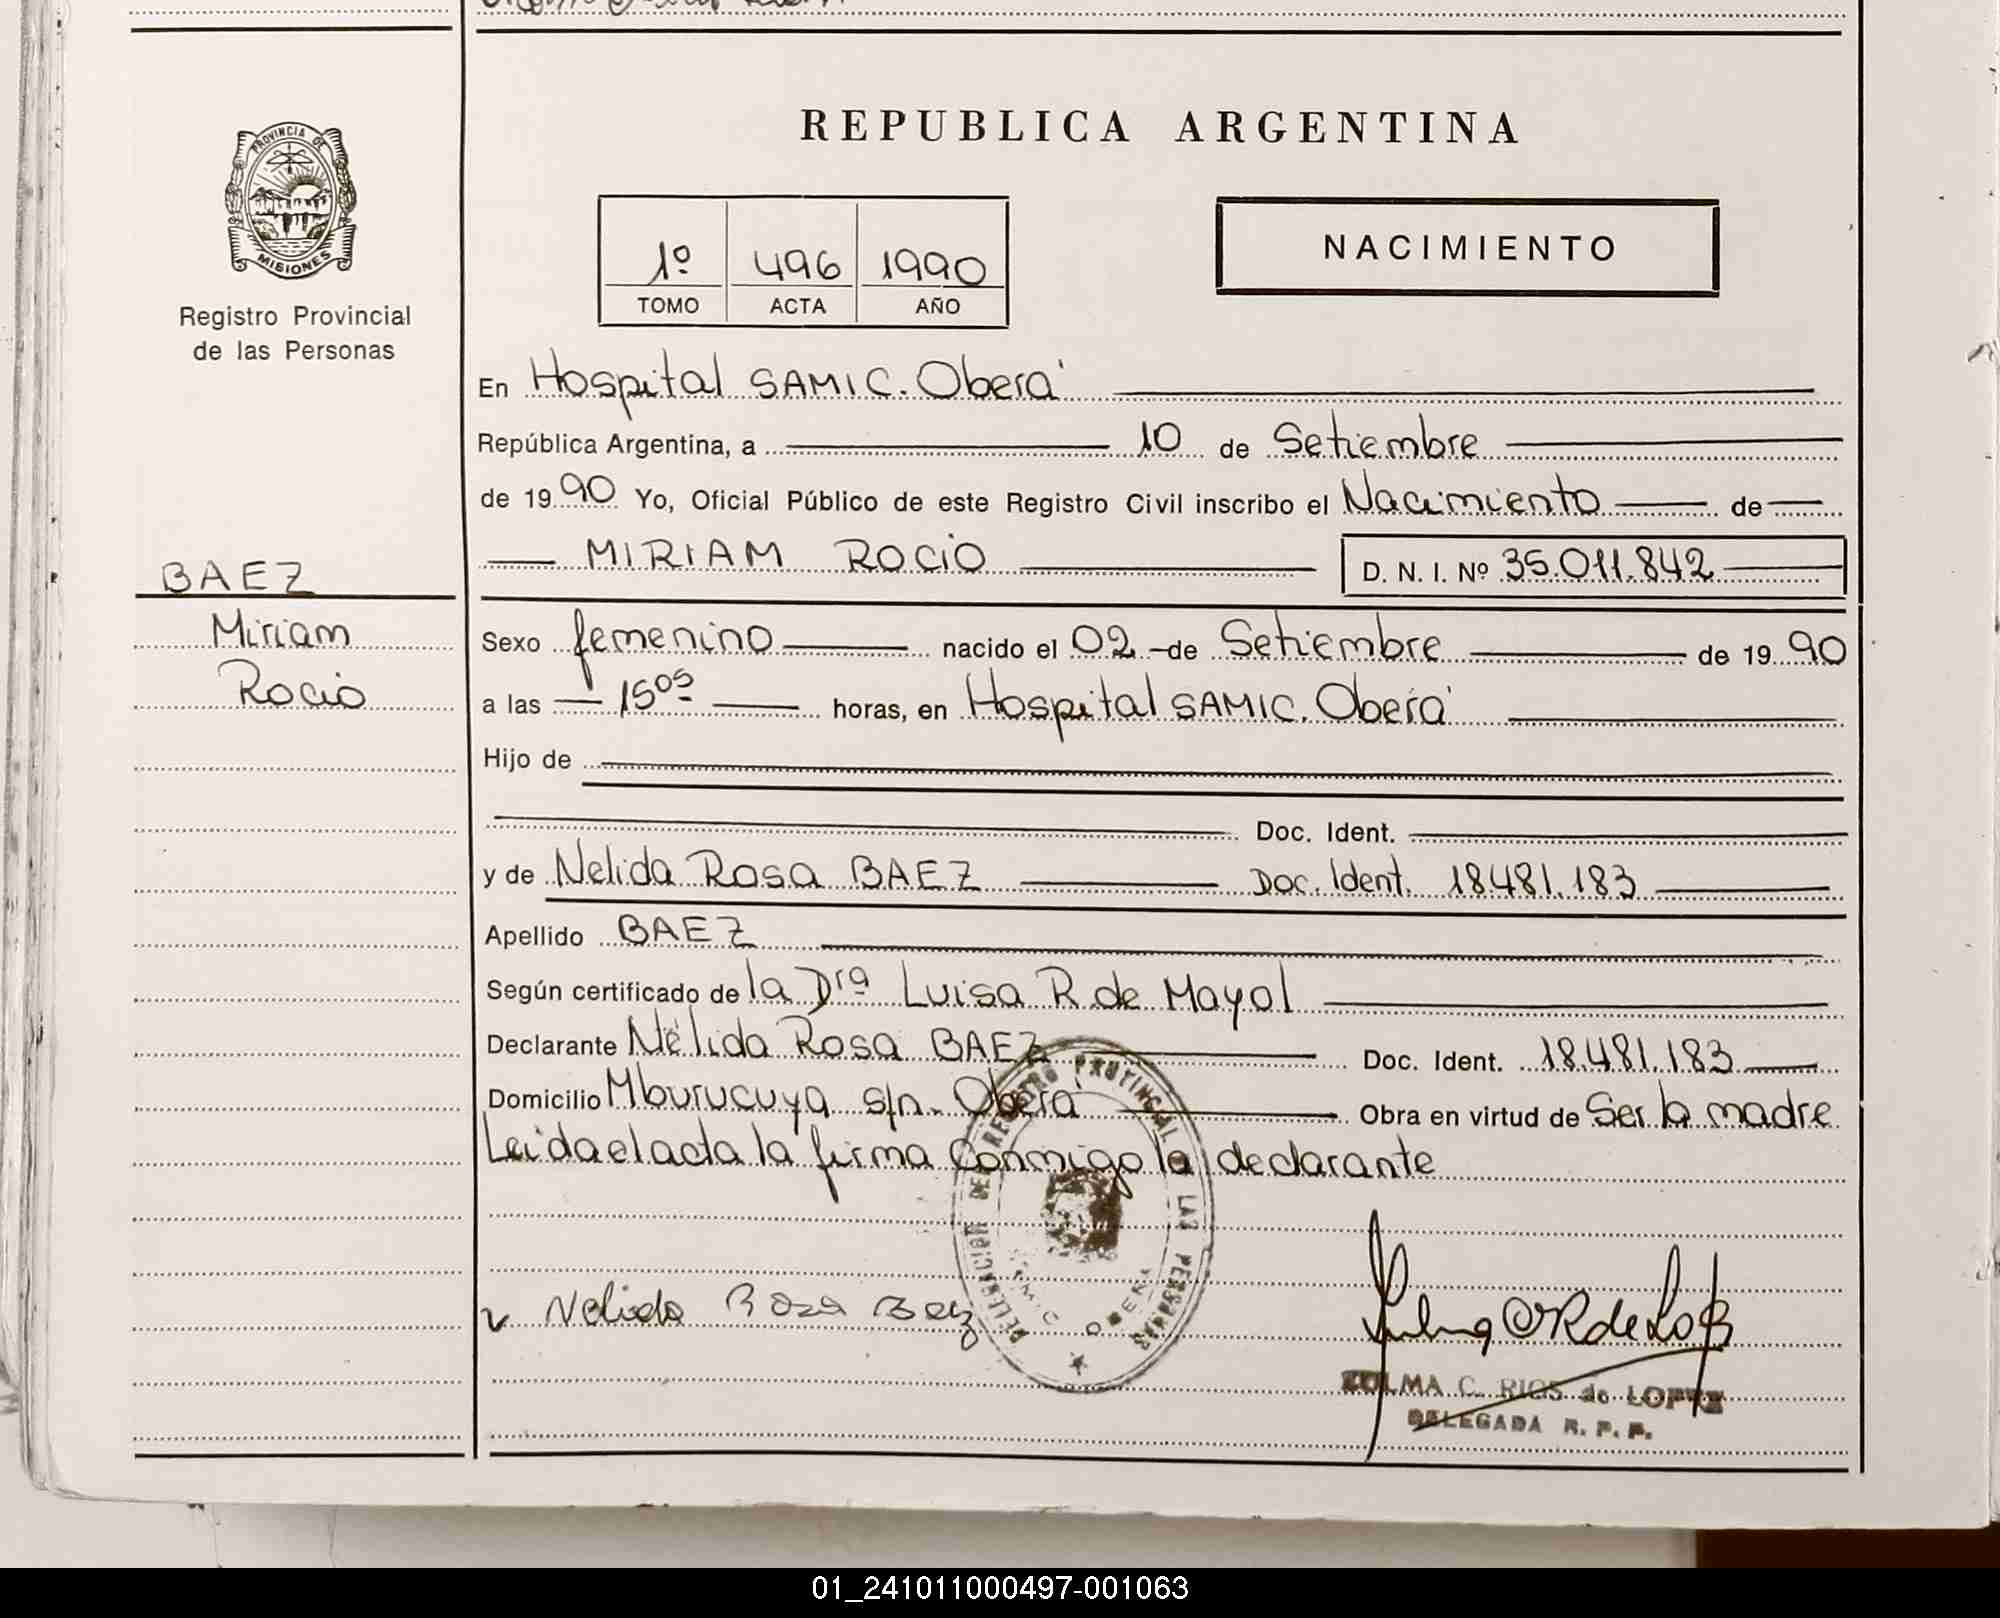 REPUBLICA ARGENTINA
PROVINCIA DE
MISIONES
Registro Provincial
de las Personas
1º 496 1990
TOMO ACTA AÑO
NACIMIENTO
BAEZ
Miriam
Rocio
En Hospital SAMIC. Oberá
República Argentina, a 10 de Setiembre
de 1990 Yo, Oficial Público de este Registro Civil inscribo el Nacimiento de
MIRIAM ROCIO D. N. I. Nº 35.011.842
Sexo femenino nacido el 02 de Setiembre de 1990
a las 15⁰⁵ horas, en Hospital SAMIC. Oberá
Hijo de
Doc. Ident.
y de Nelida Rosa BAEZ Doc. Ident. 18.481.183
Apellido BAEZ
Según certificado de la Drª Luisa R. de Mayol
Declarante Nélida Rosa BAEZ Doc. Ident. 18.481.183
Domicilio Mburucuya s/n. Oberá Obra en virtud de Ser la madre
Leida el acta la firma conmigo la declarante
Nelida Rosa Baez
DELEGACION DEL REGISTRO PROVINCIAL LAS PERSONAS
ZULMA C. RIOS de LOPEZ
DELEGADA R. P. P.
01_241011000497-001063